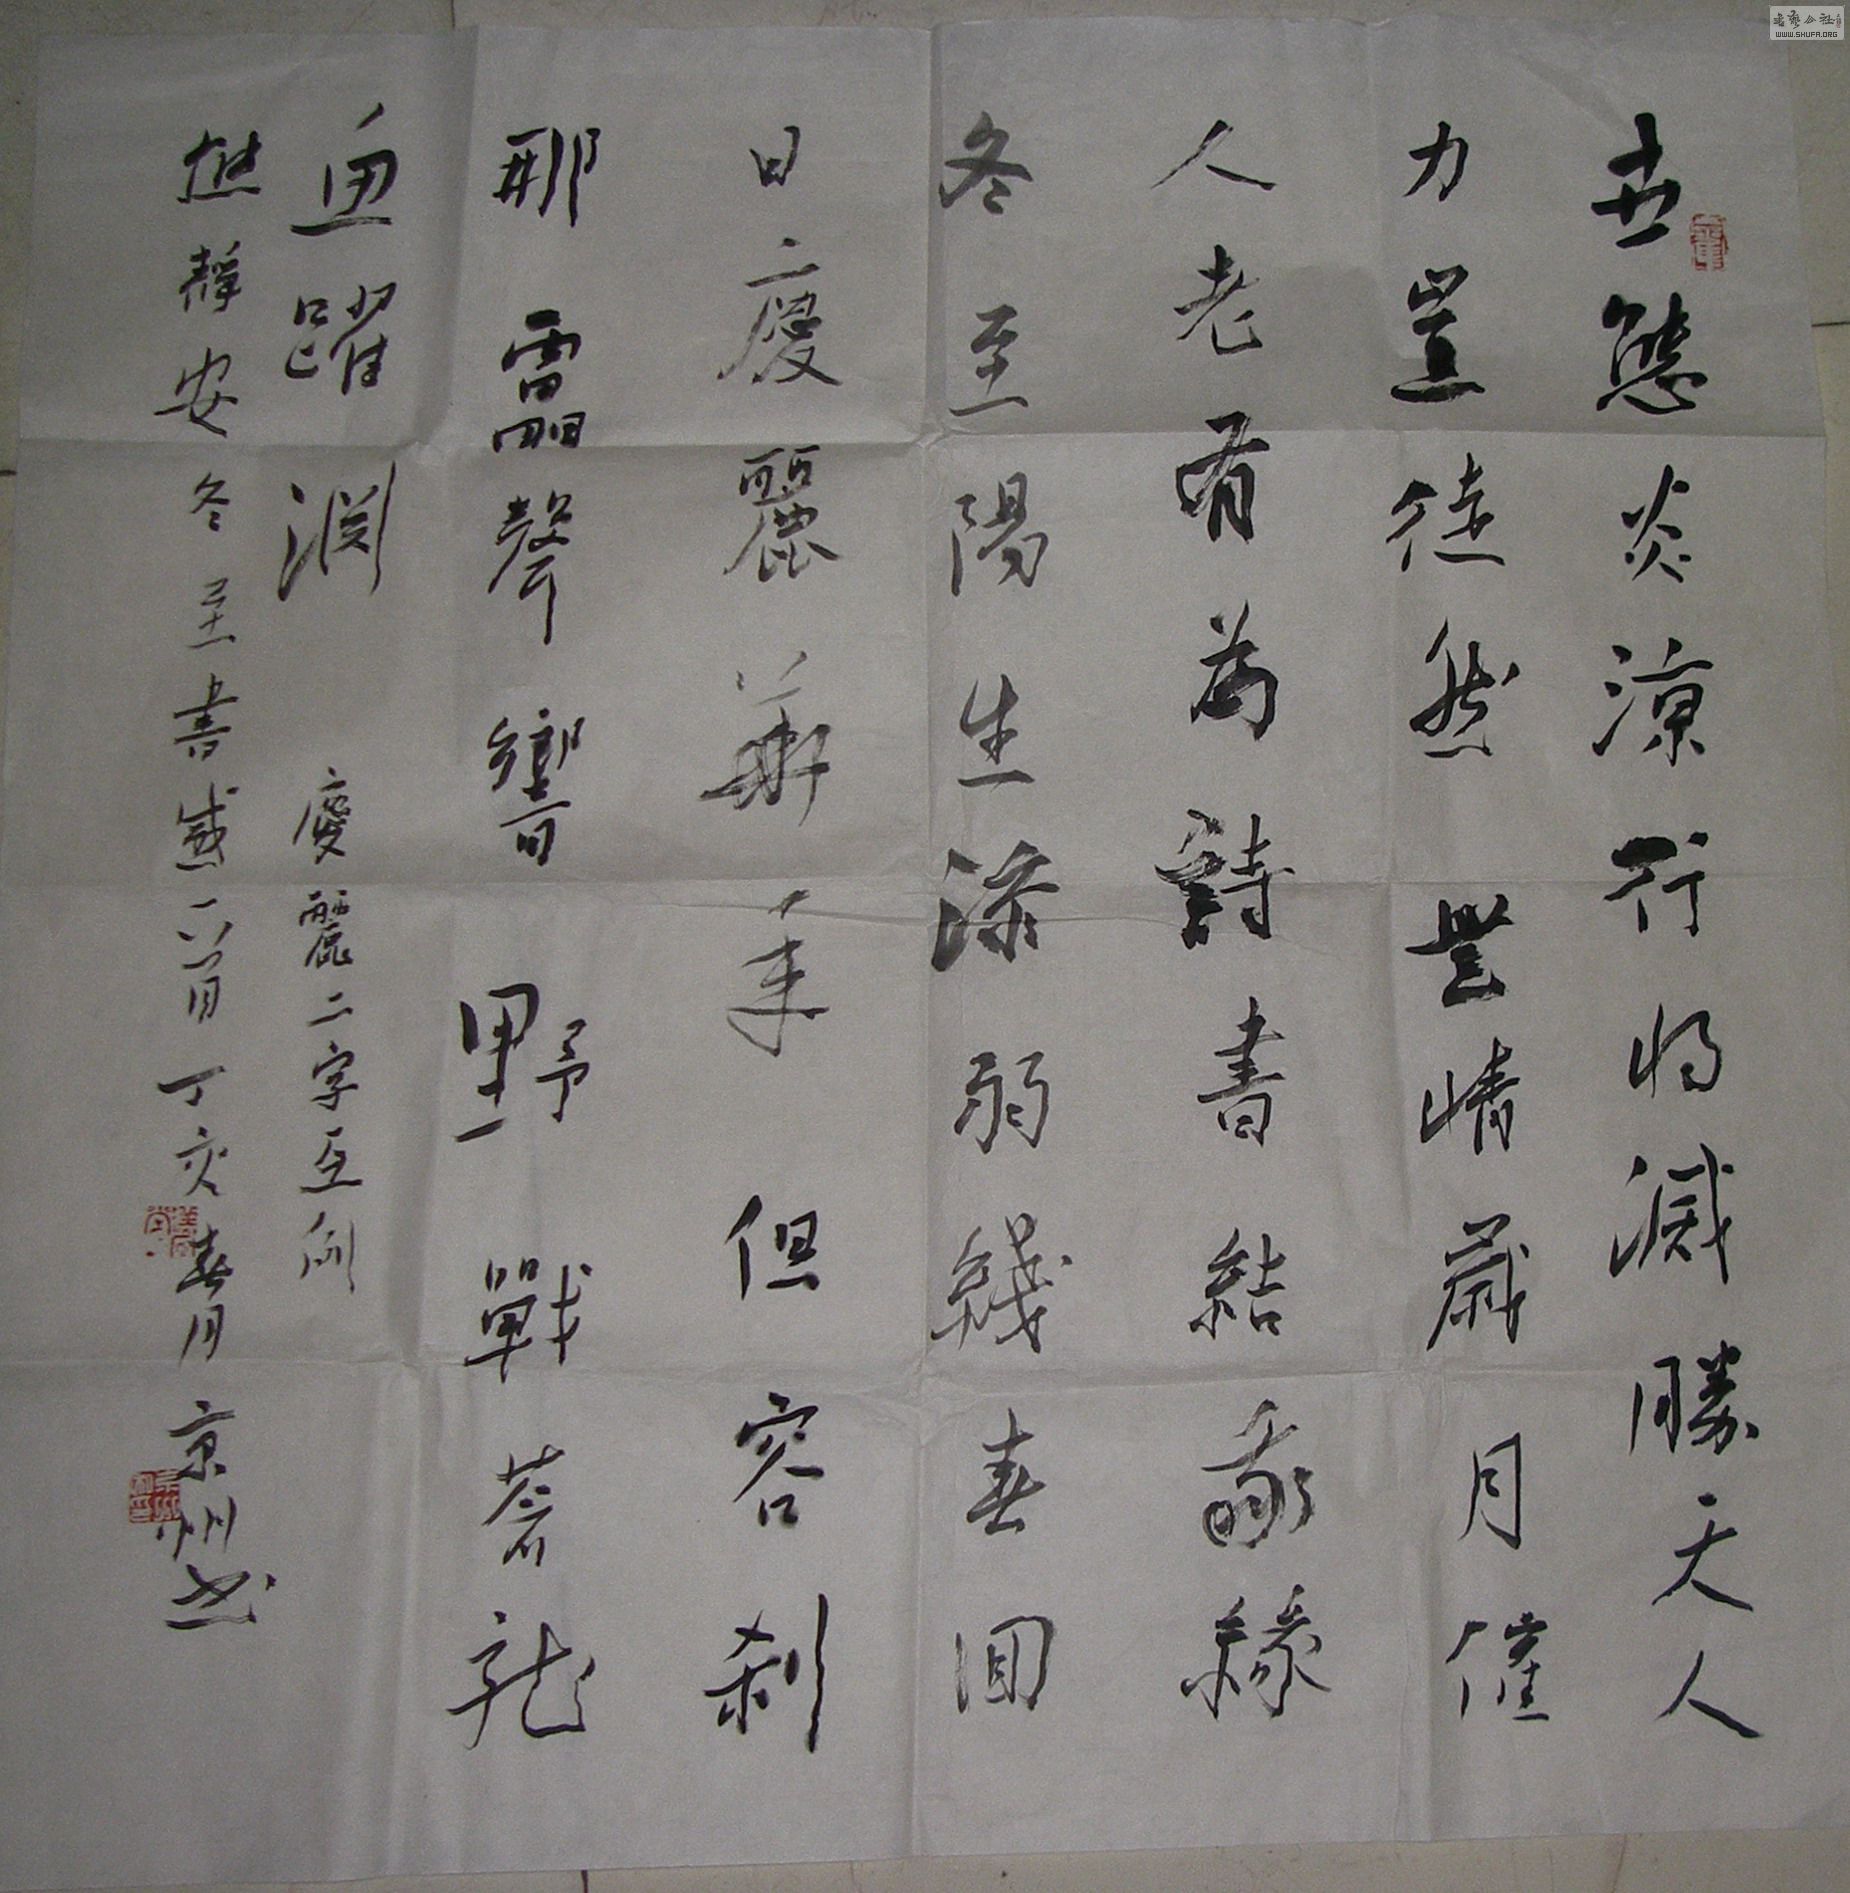 世態炎涼行将滅勝天人
力豈徒然豐情歲月催
人老有為詩書結緣
冬至陽生添弱綫春回
日慶麗華年但容刹
那雷聲響野戰蒼龍
魚躍淵
慶麗二字互倒
靜安冬至書感一首丁亥春月京州书
書藝公社
WWW.SHUFA.ORG